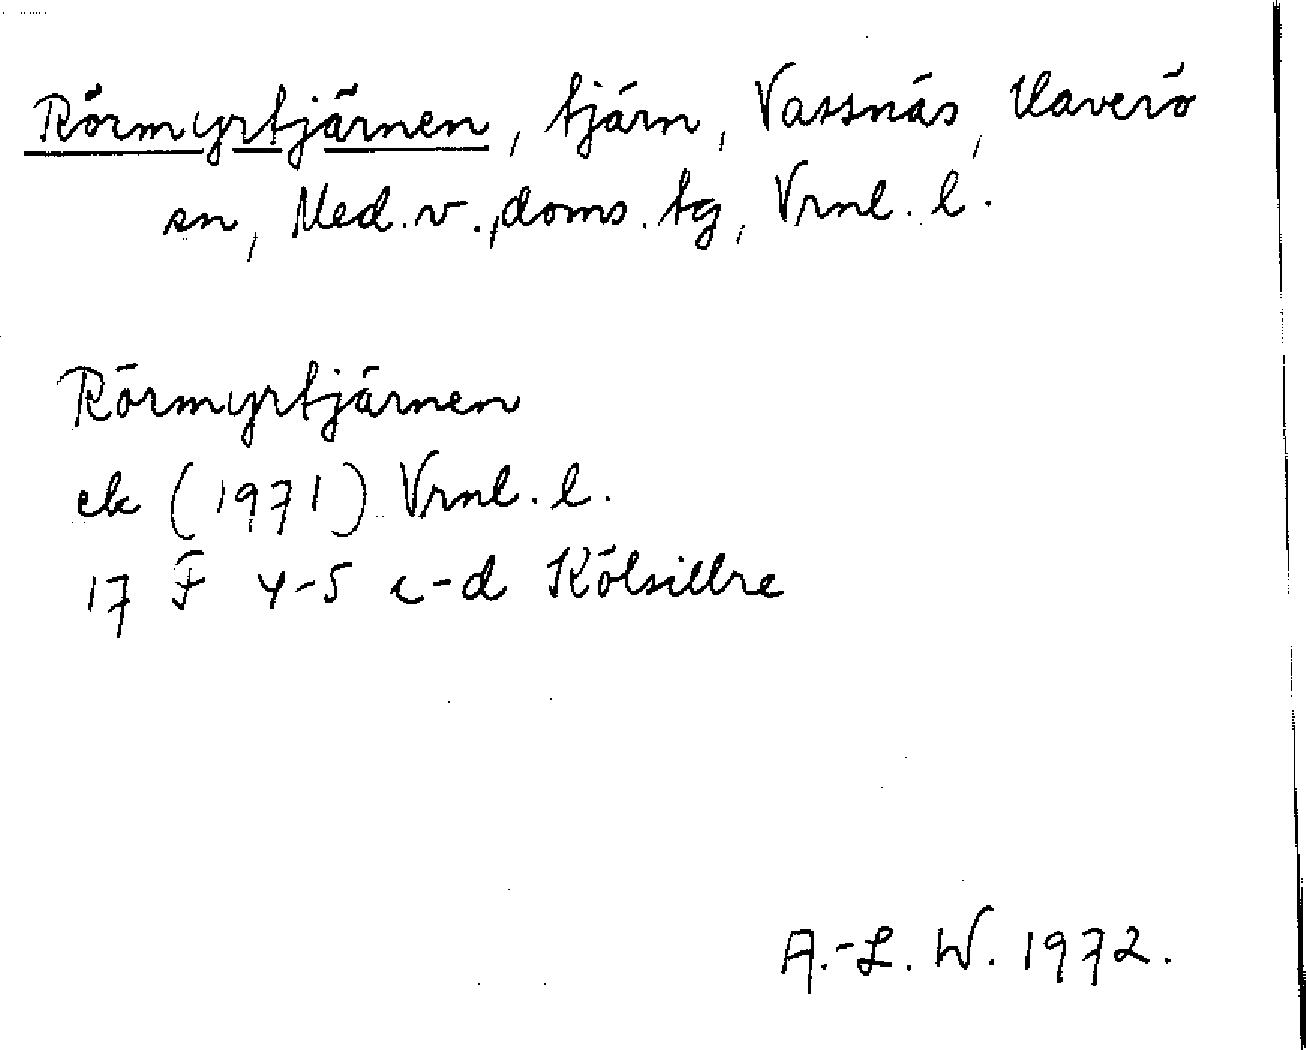 Rörmyrtjärnen, tjärn, Vassnäs, Haverö
sn, Med. v., doms. tg, Vrnl. l.
Rörmyrtjärnen
ek (1971) Vrnl. l.
17 F 4-5 c-d Kölsillre
A.-L. W. 1972.